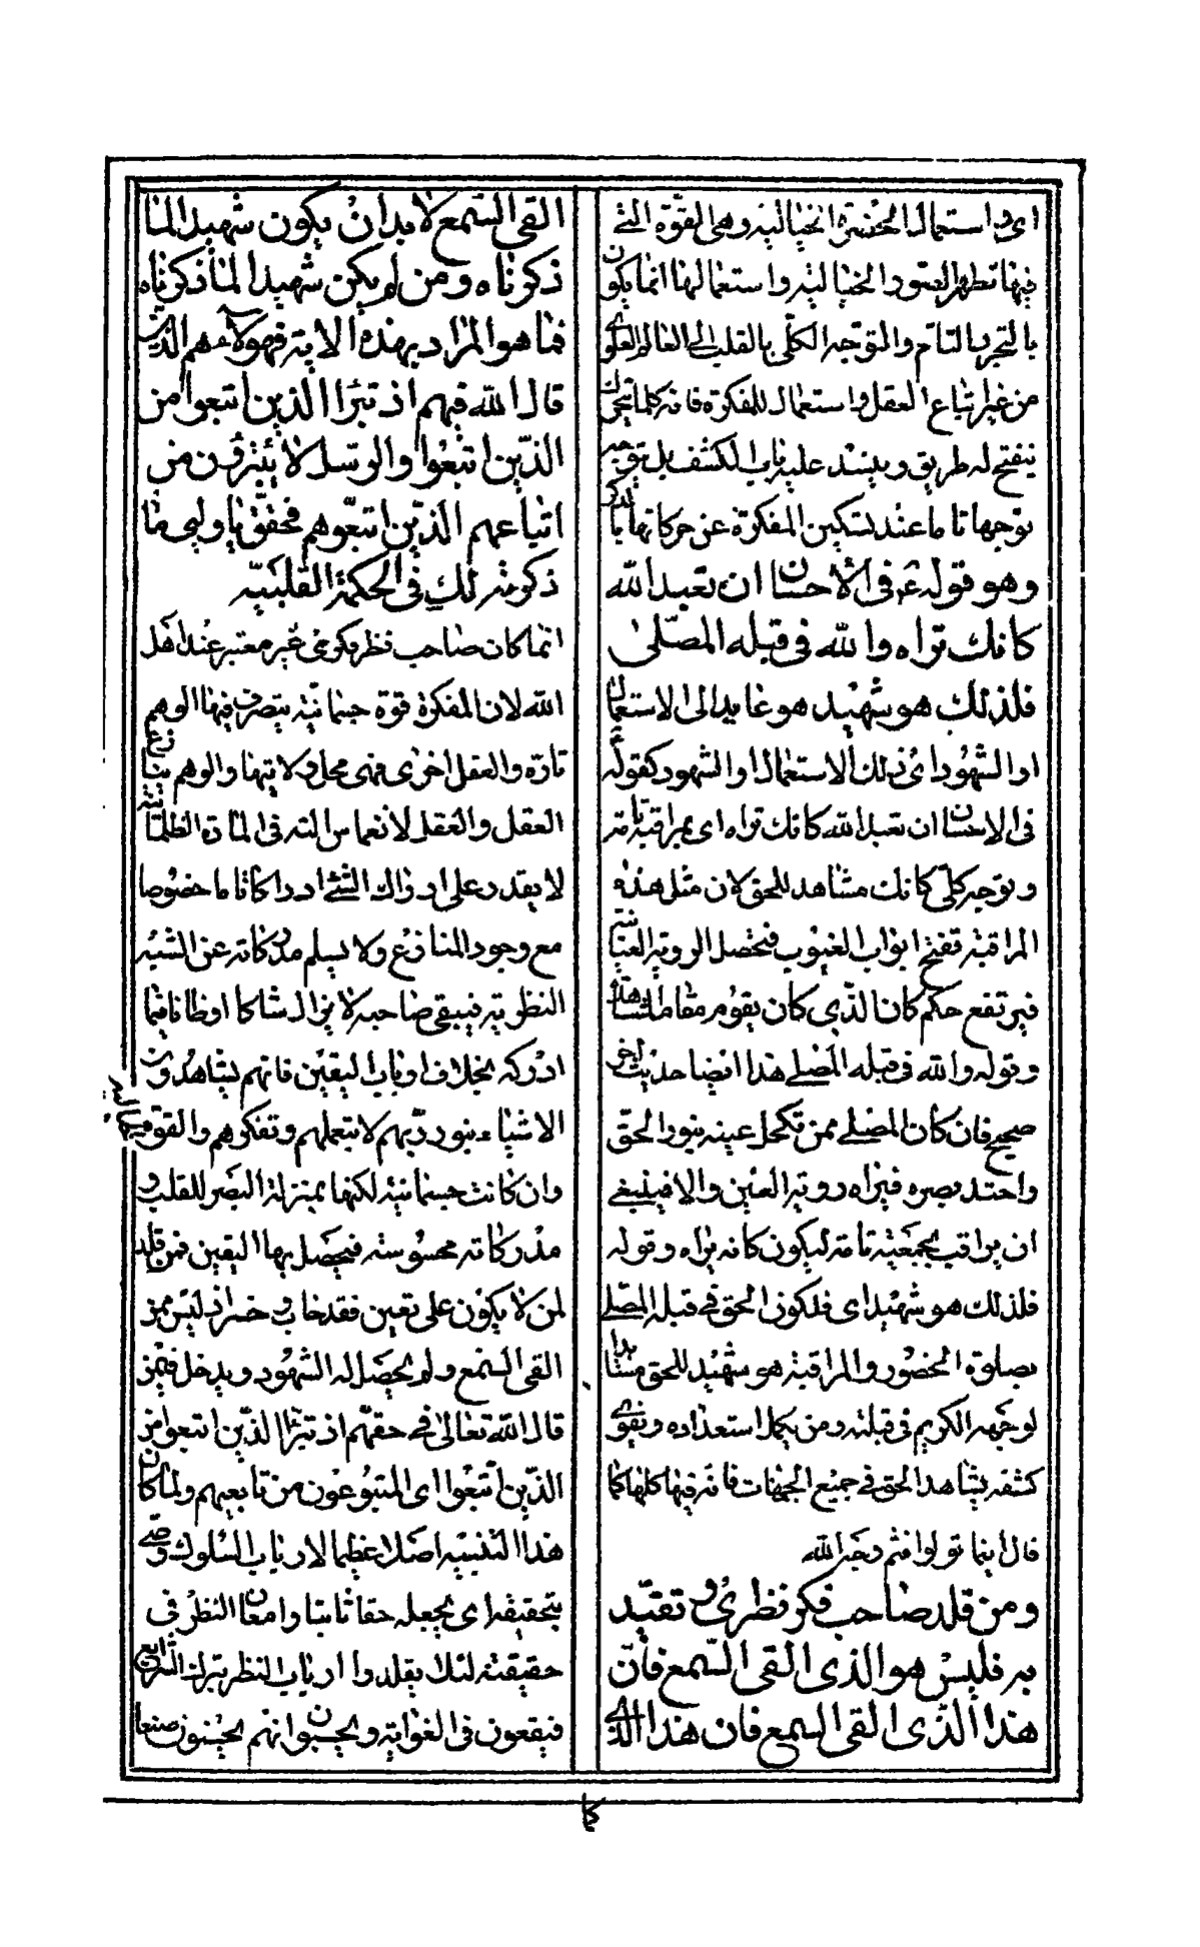 اى واستعمال الحضرة الخيالية وهى القوة التى
فيها تظهر الصور الخيالية واستعمالها انما يكون
بالتجريد التام والتوجه الكلى بالقلب الى العالم العلوى
من غير اتباع العقل واستعمال للمفكرة فانه كلما تحركت
ينفتح له طريق وينسد عليه باب الكشف بل بتوجه
توجها تاما عند تسكين المفكرة عن حركاتها بالذكر
وهو قوله ع فى الاحسان ان تعبد الله
كانك تراه والله فى قبلة المصلى
فلذلك هو شهيد هو عايد الى الاستعمال
او الشهود اى ذلك الاستعمال او الشهود كقوله
فى الاحسان ان تعبد الله كانك تراه اى بمراقبة تامة
وتوجه كلى كانك مشاهد للحق لان مثل هذه
المراقبة تفتح ابواب الغيوب فتحصل الروية العيانية
فيرتفع حكم كان الذى كان يقوم مقام المشاهدة
وقوله والله فى قبلة المصلى هذا ايضا حديث اخر
صحيح فان كان المصلى ممن تكحل عينه بنور الحق
واحتد بصره فيراه روية العين والا فينبغى
ان يراقب بجمعية تامة ليكون كانه يراه وقوله
فلذلك هو شهيد اى فلكون الحق فى قبلة المصلى
بصلوة الحضور والمراقبة هو شهيد للحق مشاهدا
لوجهه الكريم فى قبلته ومن يكمل استعداده ويقوى
كشفه يشاهد الحق فى جميع الجهات فانه فيها كلها كما
قال اينما تولوا فثم وجه الله
ومن قلد صاحب فكر نظرى وتقيد
به فليس هو الذى القى السمع فان
هذا الذى القى السمع فان هذا الذى
القى السمع لا بد ان يكون شهيدا لما
ذكرناه ومن لم يكن شهيدا لما ذكرناه
فما هو المراد بهذه الاية فهولاء هم الذين
قال الله فيهم اذ تبرا الذين اتبعوا من
الذين اتبعوا والرسل لا يتبرؤن من
اتباعهم الذين اتبعوهم فحقق يا ولى ما
ذكرته لك فى الحكمة القلبية
انما كان صاحب نظر فكرى غير معتبر عند اهل
الله لان المفكرة قوة جسمانية يتصرف فيها الوهم
تارة والعقل اخرى فهى محل ولايتها والوهم ينازع
العقل والعقل لانغماس الته فى المادة الظلمانية
لا يقدر على ادراك الشئ ادراكا تاما خصوصا
مع وجود المنازع ولا يسلم مدركاته عن الشبه
النظرية فيبقى صاحبه لا يزال شاكا او ظانا فيما
ادركه بخلاف ارباب اليقين فانهم يشاهدون
الاشياء بنور ربهم لا بتعملهم وتفكرهم والقوة الخيالية
وان كانت جسمانية لكنها بمنزلة البصر للقلب و
مدركاته محسوسته فيحصل بها اليقين فمن قلد
لمن لا يكون على تعين فقد خاب وخسر اذ ليس ممن
القى السمع ولم يحصل له الشهود ويدخل فيمن
قال الله تعالى فى حقهم اذ تبرا الذين اتبعوا من
الذين اتبعوا اى المتبوعون من تابعيهم ولما كان
هذا التنبيه اصلا عظيما لارباب السلوك وصى
بتحقيقه اى بجعله حقا ثابتا وامعان النظر فى
حقيقته لئلا يقلدوا ارباب النظر بترك الشرايع
فيقعون فى الغواية ويحسبون انهم يحسنون صنعا